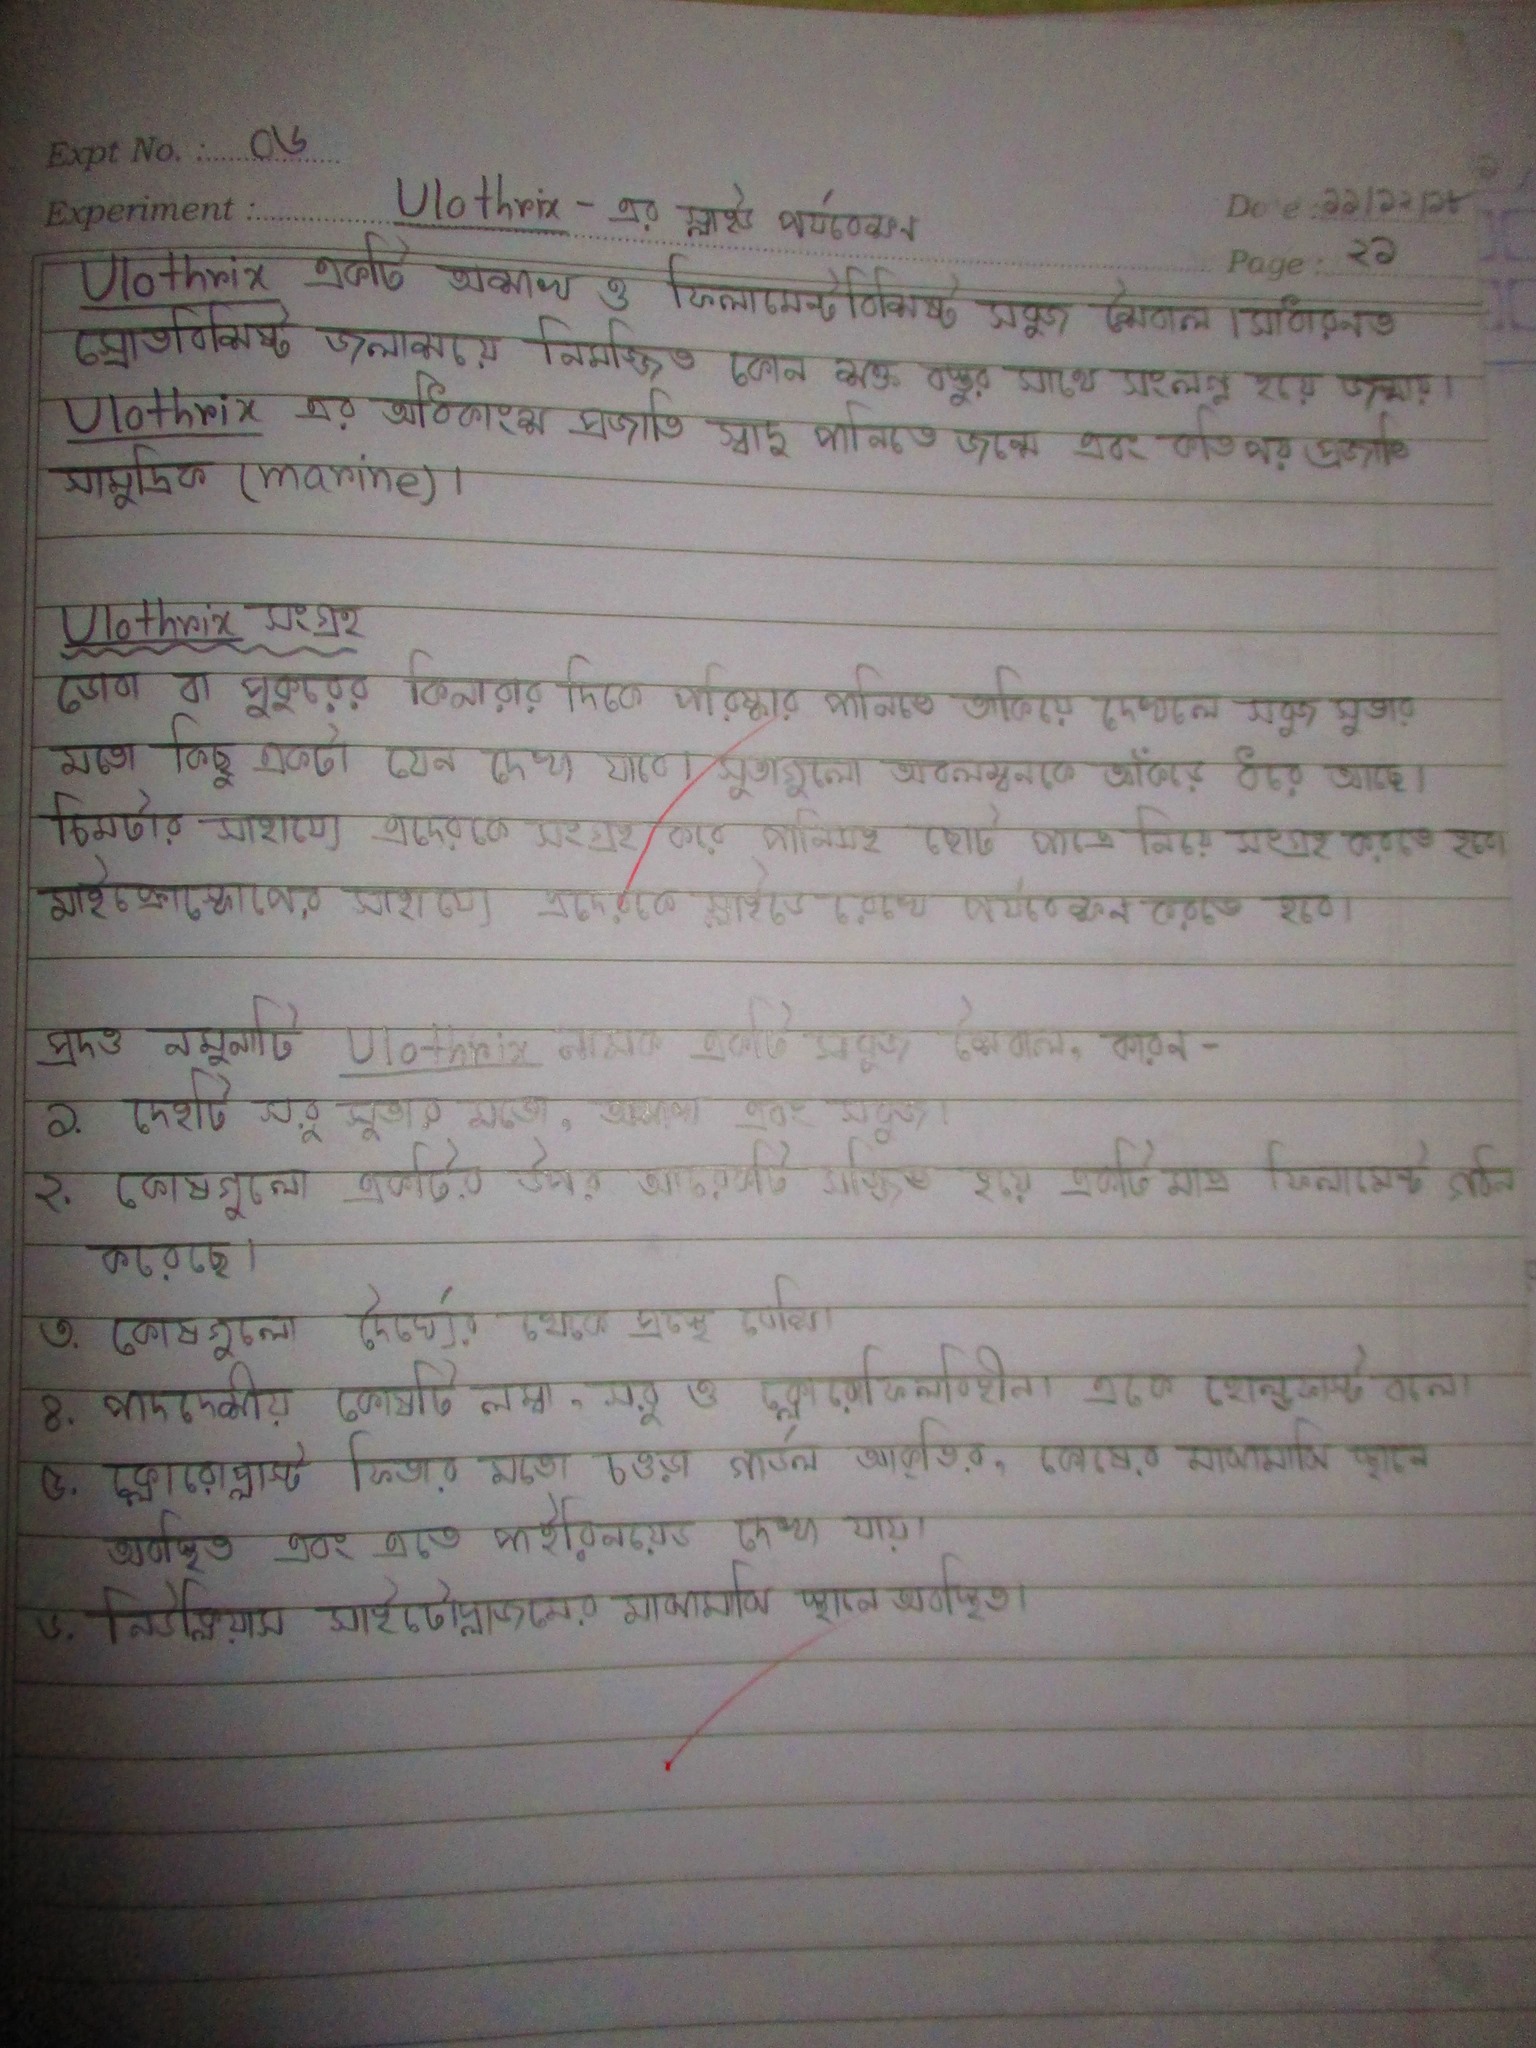 Expt No. : ০৬
Experiment : Ulothrix - এর স্লাইড পর্যবেক্ষণ
Date :
Page : ২১
Ulothrix একটি অশাখ ও ফিলামেন্টবিশিষ্ট সবুজ শৈবাল। সাধারনত
স্রোতবিশিষ্ট জলাশয়ে নিমজ্জিত কোন শক্ত বস্তুর সাথে সংলগ্ন হয়ে জন্মায়।
Ulothrix এর অধিকাংশ প্রজাতি স্বাদু পানিতে জন্মে এবং কতিপয় প্রজাতি
সামুদ্রিক (marine)।
Ulothrix সংগ্রহ
ডোবা বা পুকুরের কিনারার দিকে পরিষ্কার পানিতে তাকিয়ে দেখলে সবুজ সুতার
মতো কিছু একটা যেন দেখা যাবে। সুতাগুলো অবলম্বনকে আঁকড়ে ধরে আছে।
চিমটার সাহায্যে এদেরকে সংগ্রহ করে পানিসহ ছোট পাত্রে নিয়ে সংগ্রহ করতে হবে।
মাইক্রোস্কোপের সাহায্যে এদেরকে স্লাইডে রেখে পর্যবেক্ষন করতে হবে।
প্রদত্ত নমুনাটি Ulothrix নামক একটি সবুজ শৈবাল, কারন -
১. দেহটি সরু সুতার মতো, অশাখ এবং সবুজ।
২. কোষগুলো একটির উপর আরেকটি সজ্জিত হয়ে একটি মাত্র ফিলামেন্ট গঠন
করেছে।
৩. কোষগুলো দৈর্ঘ্যের থেকে প্রস্থে বেশি।
৪. পাদদেশীয় কোষটি লম্বা, সরু ও ক্লোরোফিলবিহীন। একে হোল্ডফাস্ট বলে।
৫. ক্লোরোপ্লাস্ট ফিতার মতো চওড়া গার্ডল আকৃতির, কোষের মাঝামাঝি স্থানে
অবস্থিত এবং এতে পাইরিনয়েড দেখা যায়।
৬. নিউক্লিয়াস সাইটোপ্লাজমের মাঝামাঝি স্থানে অবস্থিত।